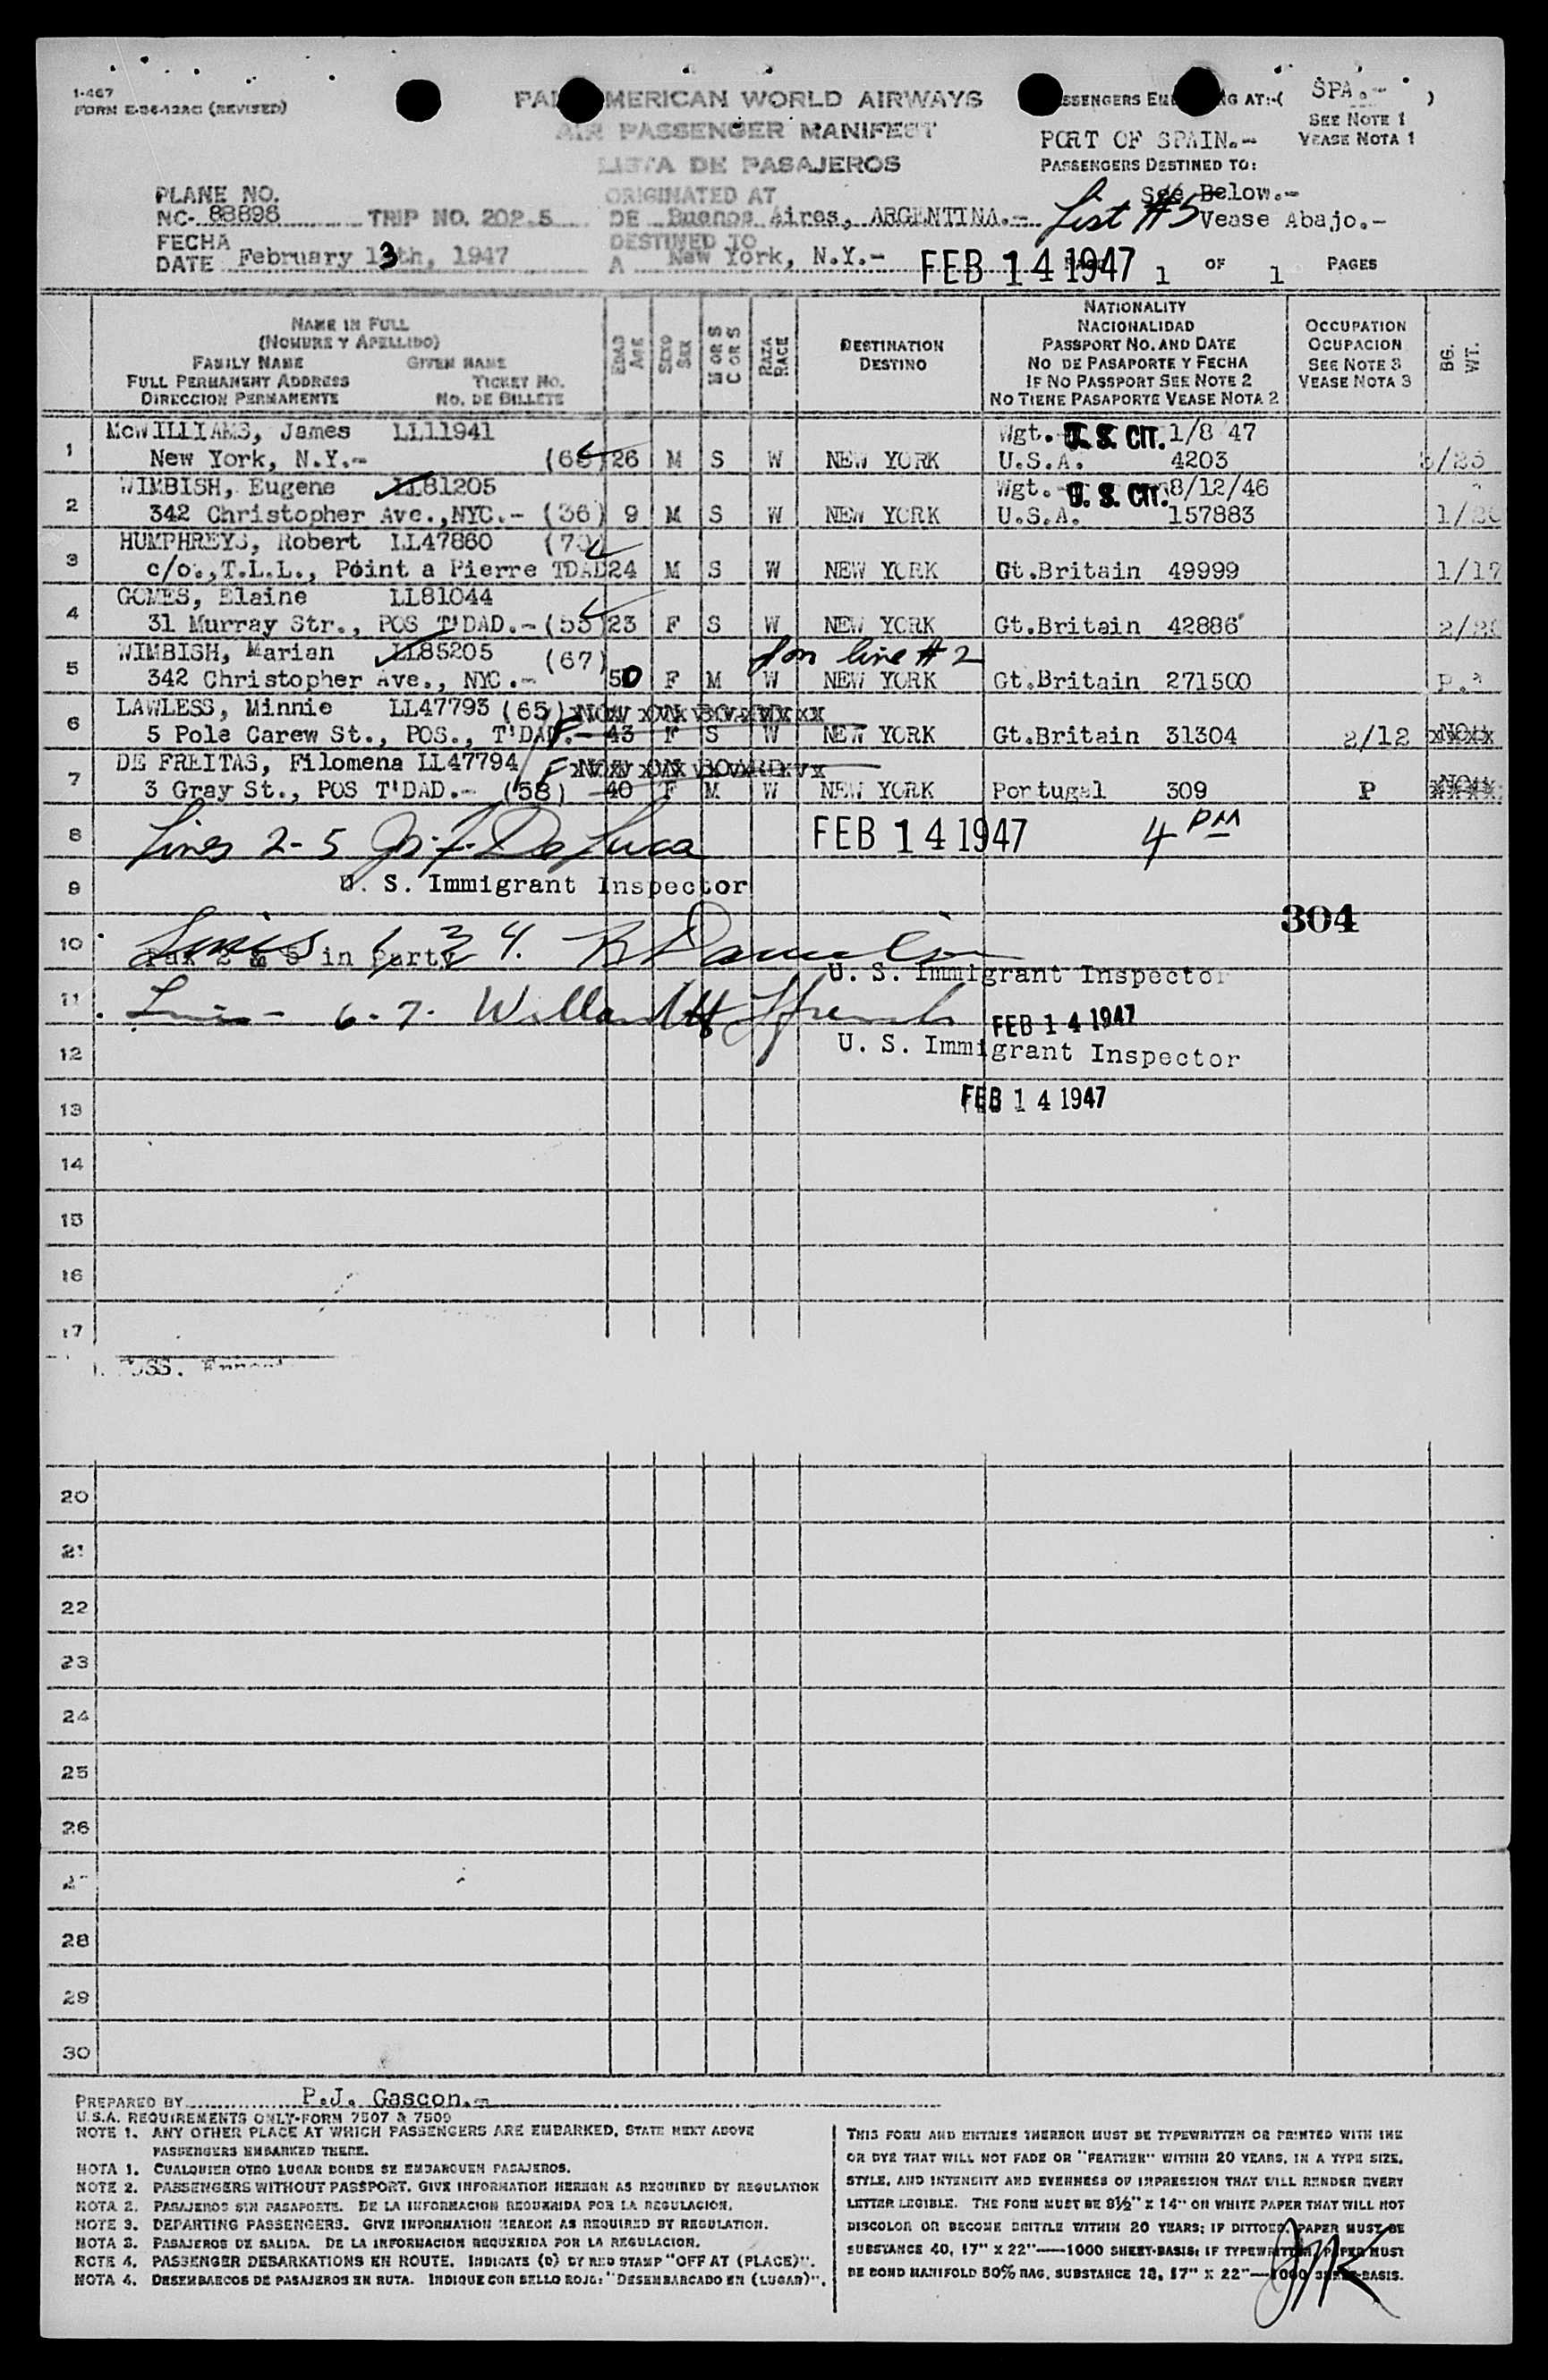 1-467
FORM E-36-12AC (REVISED)
PAN AMERICAN WORLD AIRWAYS
AIR PASSENGER MANIFEST
LISTA DE PASAJEROS
SPA.- )
SEE NOTE 1
VEASE NOTA 1
PORT OF SPAIN.-
PASSENGERS DESTINED TO:
See Below.-
Vease Abajo.-
List #5
PLANE NO.
NC- 88896 TRIP NO. 202.5
ORIGINATED AT
DE Buenos Aires, ARGENTINA.-
FECHA
DATE February 13th, 1947
DESTINED TO
A New York, N.Y.-
FEB 14 1947
1 OF 1 PAGES
NAME IN FULL
(NOMBRE Y APELLIDO)
FAMILY NAME GIVEN NAME
FULL PERMANENT ADDRESS TICKET NO.
DIRECCION PERMANENTE NO. DE BILLETE
EDAD AGE
SEXO SEX
M OR S C OR S
RAZA RACE
DESTINATION
DESTINO
NATIONALITY
NACIONALIDAD
PASSPORT NO. AND DATE
NO DE PASAPORTE Y FECHA
IF NO PASSPORT SEE NOTE 2
NO TIENE PASAPORTE VEASE NOTA 2
OCCUPATION
OCUPACION
SEE NOTE 3
VEASE NOTA 3
BG. WT.
1 McWILLIAMS, James LL11941 Wgt. U. S. CIT. 1/8 47
New York, N.Y.- 26 M S W NEW YORK U.S.A. 4203
2 WIMBISH, Eugene LL81205 Wgt. U. S. CIT. 8/12/46
342 Christopher Ave.,NYC.- (36) 9 M S W NEW YORK U.S.A. 157883
3 HUMPHREYS, Robert LL47860 (70)
c/o.,T.L.L., Point a Pierre TDAD 24 M S W NEW YORK Gt.Britain 49999 1/17
4 GOMES, Elaine LL81044
31 Murray Str., POS T'DAD.- (53) 23 F S W NEW YORK Gt.Britain 42886
5 WIMBISH, Marian LL85205 (67) on line #2
342 Christopher Ave., NYC.- 50 F M W NEW YORK Gt.Britain 271500
6 LAWLESS, Minnie LL47793 (65)
5 Pole Carew St., POS., T'DAD.- 43 F S W NEW YORK Gt.Britain 31304 2/12
7 DE FREITAS, Filomena LL47794
3 Gray St., POS T'DAD.- (58) 40 F M W NEW YORK Portugal 309 P
8 Lines 2-5 Jos. F. De Luca FEB 14 1947 4 PM
9 U. S. Immigrant Inspector
304
10 Lines 1, 3 4.
Pax 2 & 5 in Party
U. S. Immigrant Inspector
11 Lines - 6-7. Willard
FEB 14 1947
12 U. S. Immigrant Inspector
13 FEB 14 1947
14
15
16
17
20
21
22
23
24
25
26
28
29
30
PREPARED BY P.J. Gascon.-
U.S.A. REQUIREMENTS ONLY-FORM 7507 & 7509
NOTE 1. ANY OTHER PLACE AT WHICH PASSENGERS ARE EMBARKED, STATE NEXT ABOVE
PASSENGERS EMBARKED THERE.
NOTA 1. CUALQUIER OTRO LUGAR DONDE SE EMBARQUEN PASAJEROS.
NOTE 2. PASSENGERS WITHOUT PASSPORT. GIVE INFORMATION HEREON AS REQUIRED BY REGULATION
NOTA 2. PASAJEROS SIN PASAPORTE. DE LA INFORMACION REQUERIDA POR LA REGULACION.
NOTE 3. DEPARTING PASSENGERS. GIVE INFORMATION HEREON AS REQUIRED BY REGULATION.
NOTA 3. PASAJEROS DE SALIDA. DE LA INFORMACION REQUERIDA POR LA REGULACION.
NOTE 4. PASSENGER DEBARKATIONS EN ROUTE. INDICATE (D) BY RED STAMP "OFF AT (PLACE)".
NOTA 4. DESEMBARCOS DE PASAJEROS EN RUTA. INDIQUE CON SELLO ROJO: "DESEMBARCADO EN (LUGAR)".
THIS FORM AND ENTRIES THEREON MUST BE TYPEWRITTEN OR PRINTED WITH INK
OR DYE THAT WILL NOT FADE OR "FEATHER" WITHIN 20 YEARS, IN A TYPE SIZE,
STYLE, AND INTENSITY AND EVENNESS OF IMPRESSION THAT WILL RENDER EVERY
LETTER LEGIBLE. THE FORM MUST BE 8½" X 14" ON WHITE PAPER THAT WILL NOT
DISCOLOR OR BECOME BRITTLE WITHIN 20 YEARS; IF DITTOED, PAPER MUST BE
SUBSTANCE 40, 17" X 22"—1000 SHEET-BASIS; IF TYPEWRITTEN, PAPER MUST
BE BOND MANIFOLD 50% RAG, SUBSTANCE 18, 17" X 22"—1000 SHEET-BASIS.